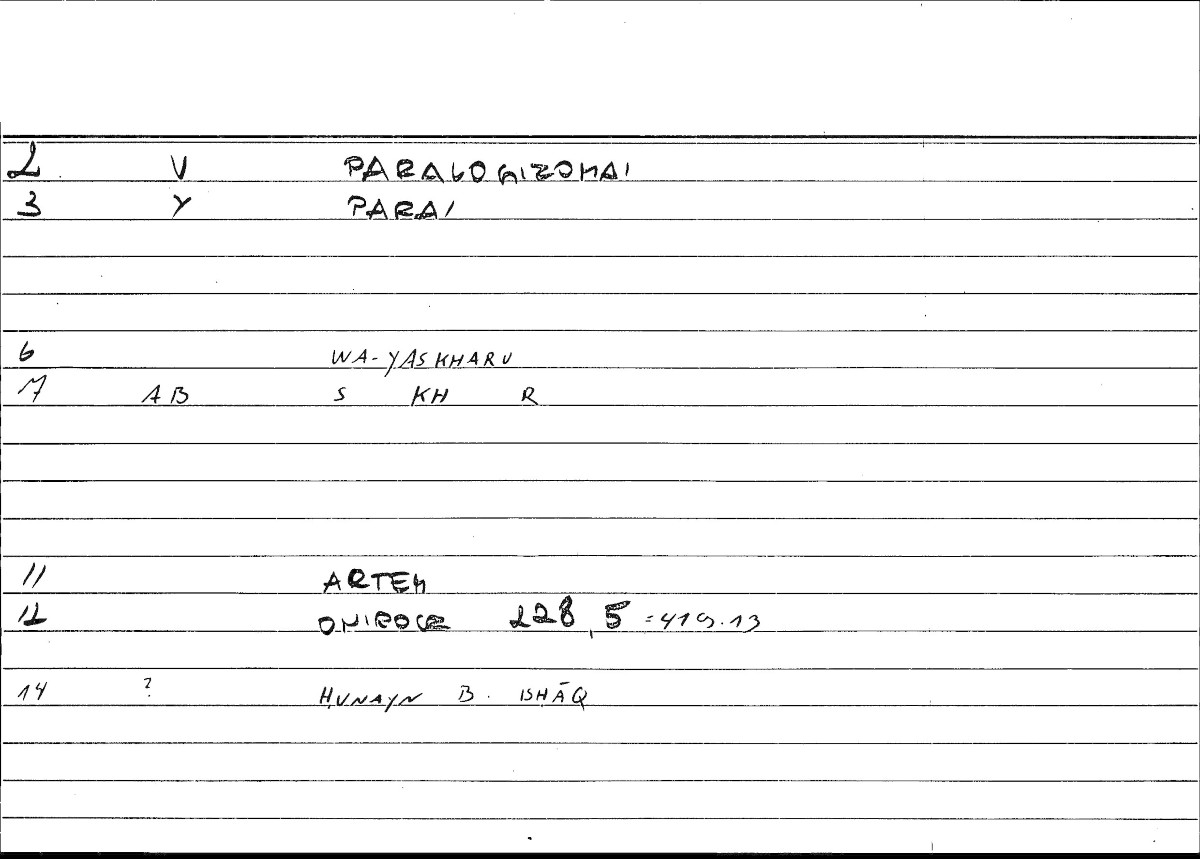 2 V PARALOGIZOMAI
3 Y PARAI
6 WA-YASKHARU
7 AB S KH R
11 ARTEM
12 ONIROCR 228,5 =419.13
14 ? ḤUNAYN B. ISḤĀQ